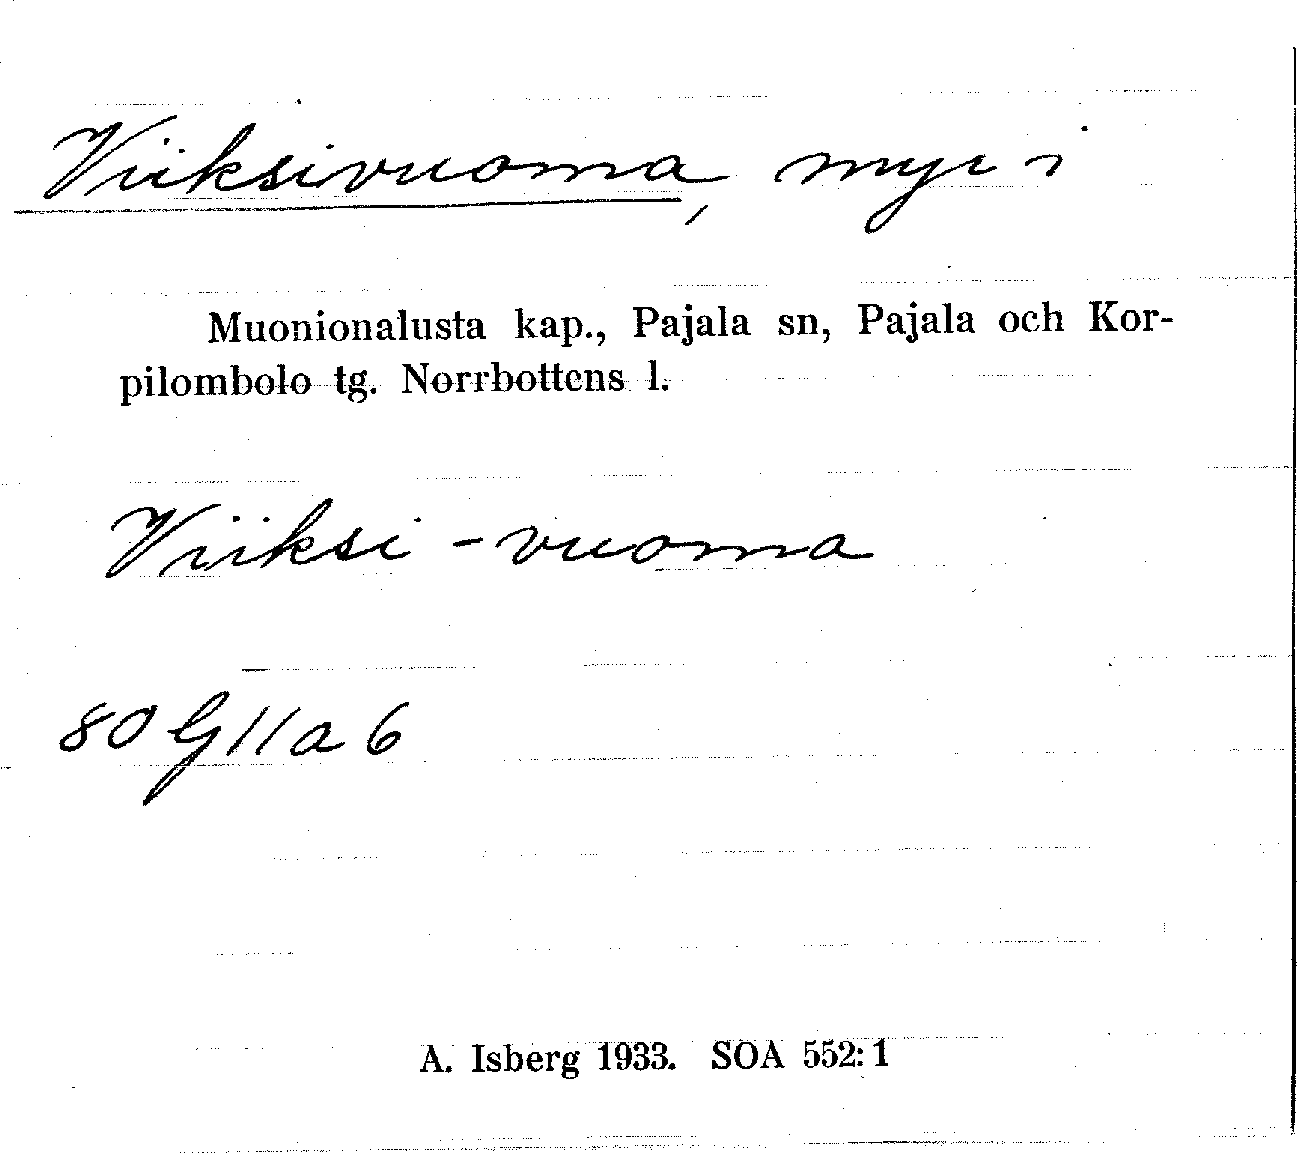 Viiksivuoma, myr i
Muonionalusta kap., Pajala sn, Pajala och Kor-
pilombolo tg. Norrbottens l.
Viiksi-vuoma
80 G 11 a 6
A. Isberg 1933. SOA 552:1